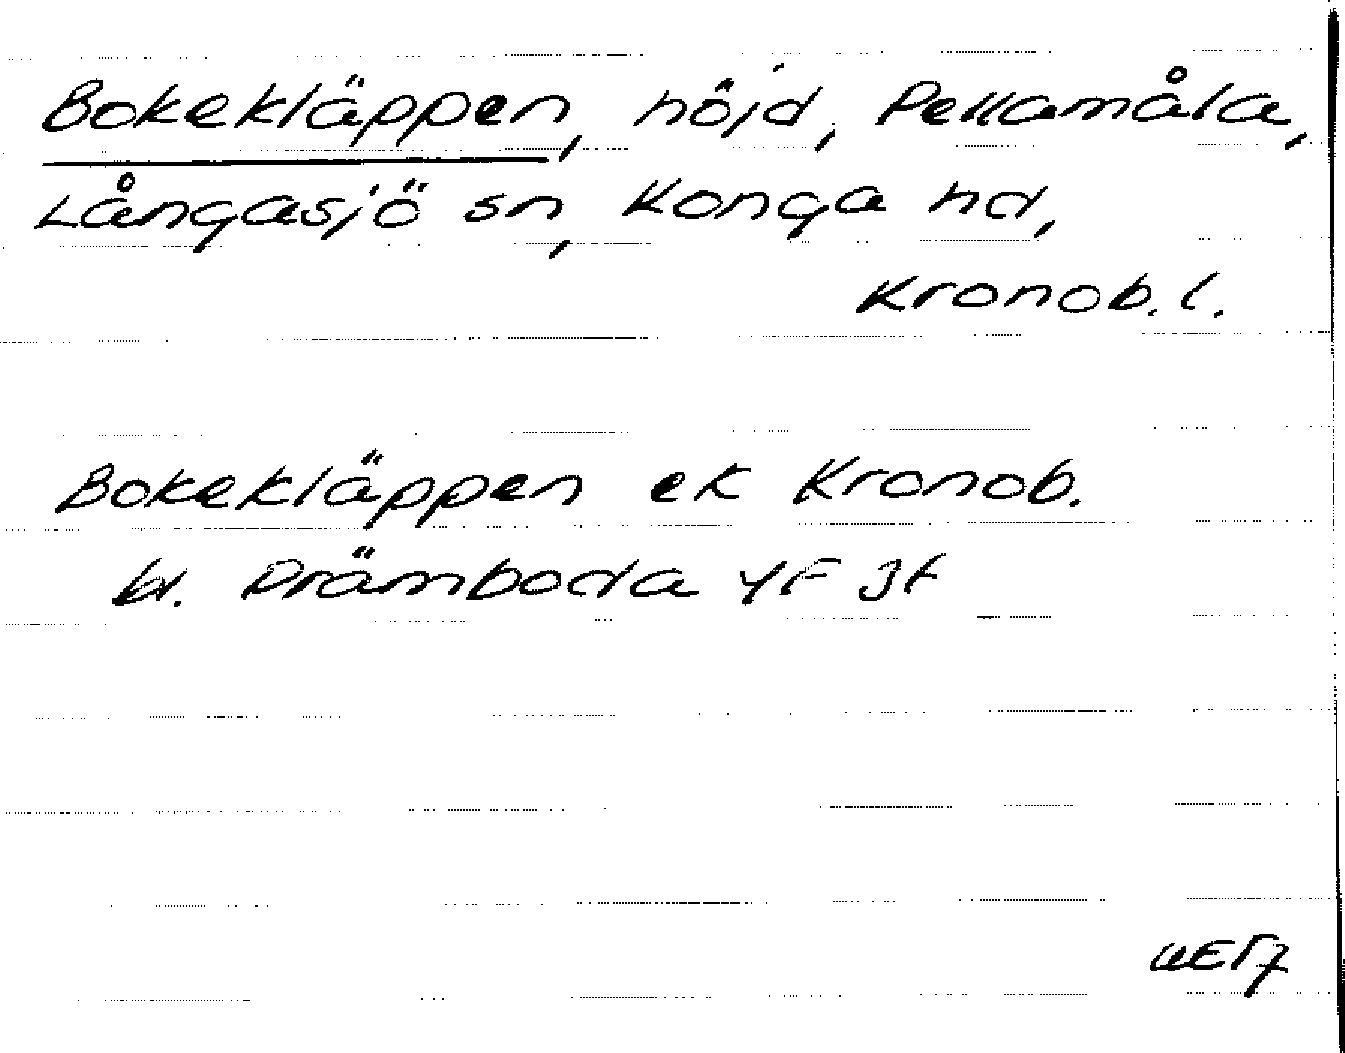 Bokekläppen, höjd, Pellamåla,
Långasjö sn, Konga hd,
Kronob. l.
Bokekläppen ek Kronob.
bl. Drämboda 4F 3f